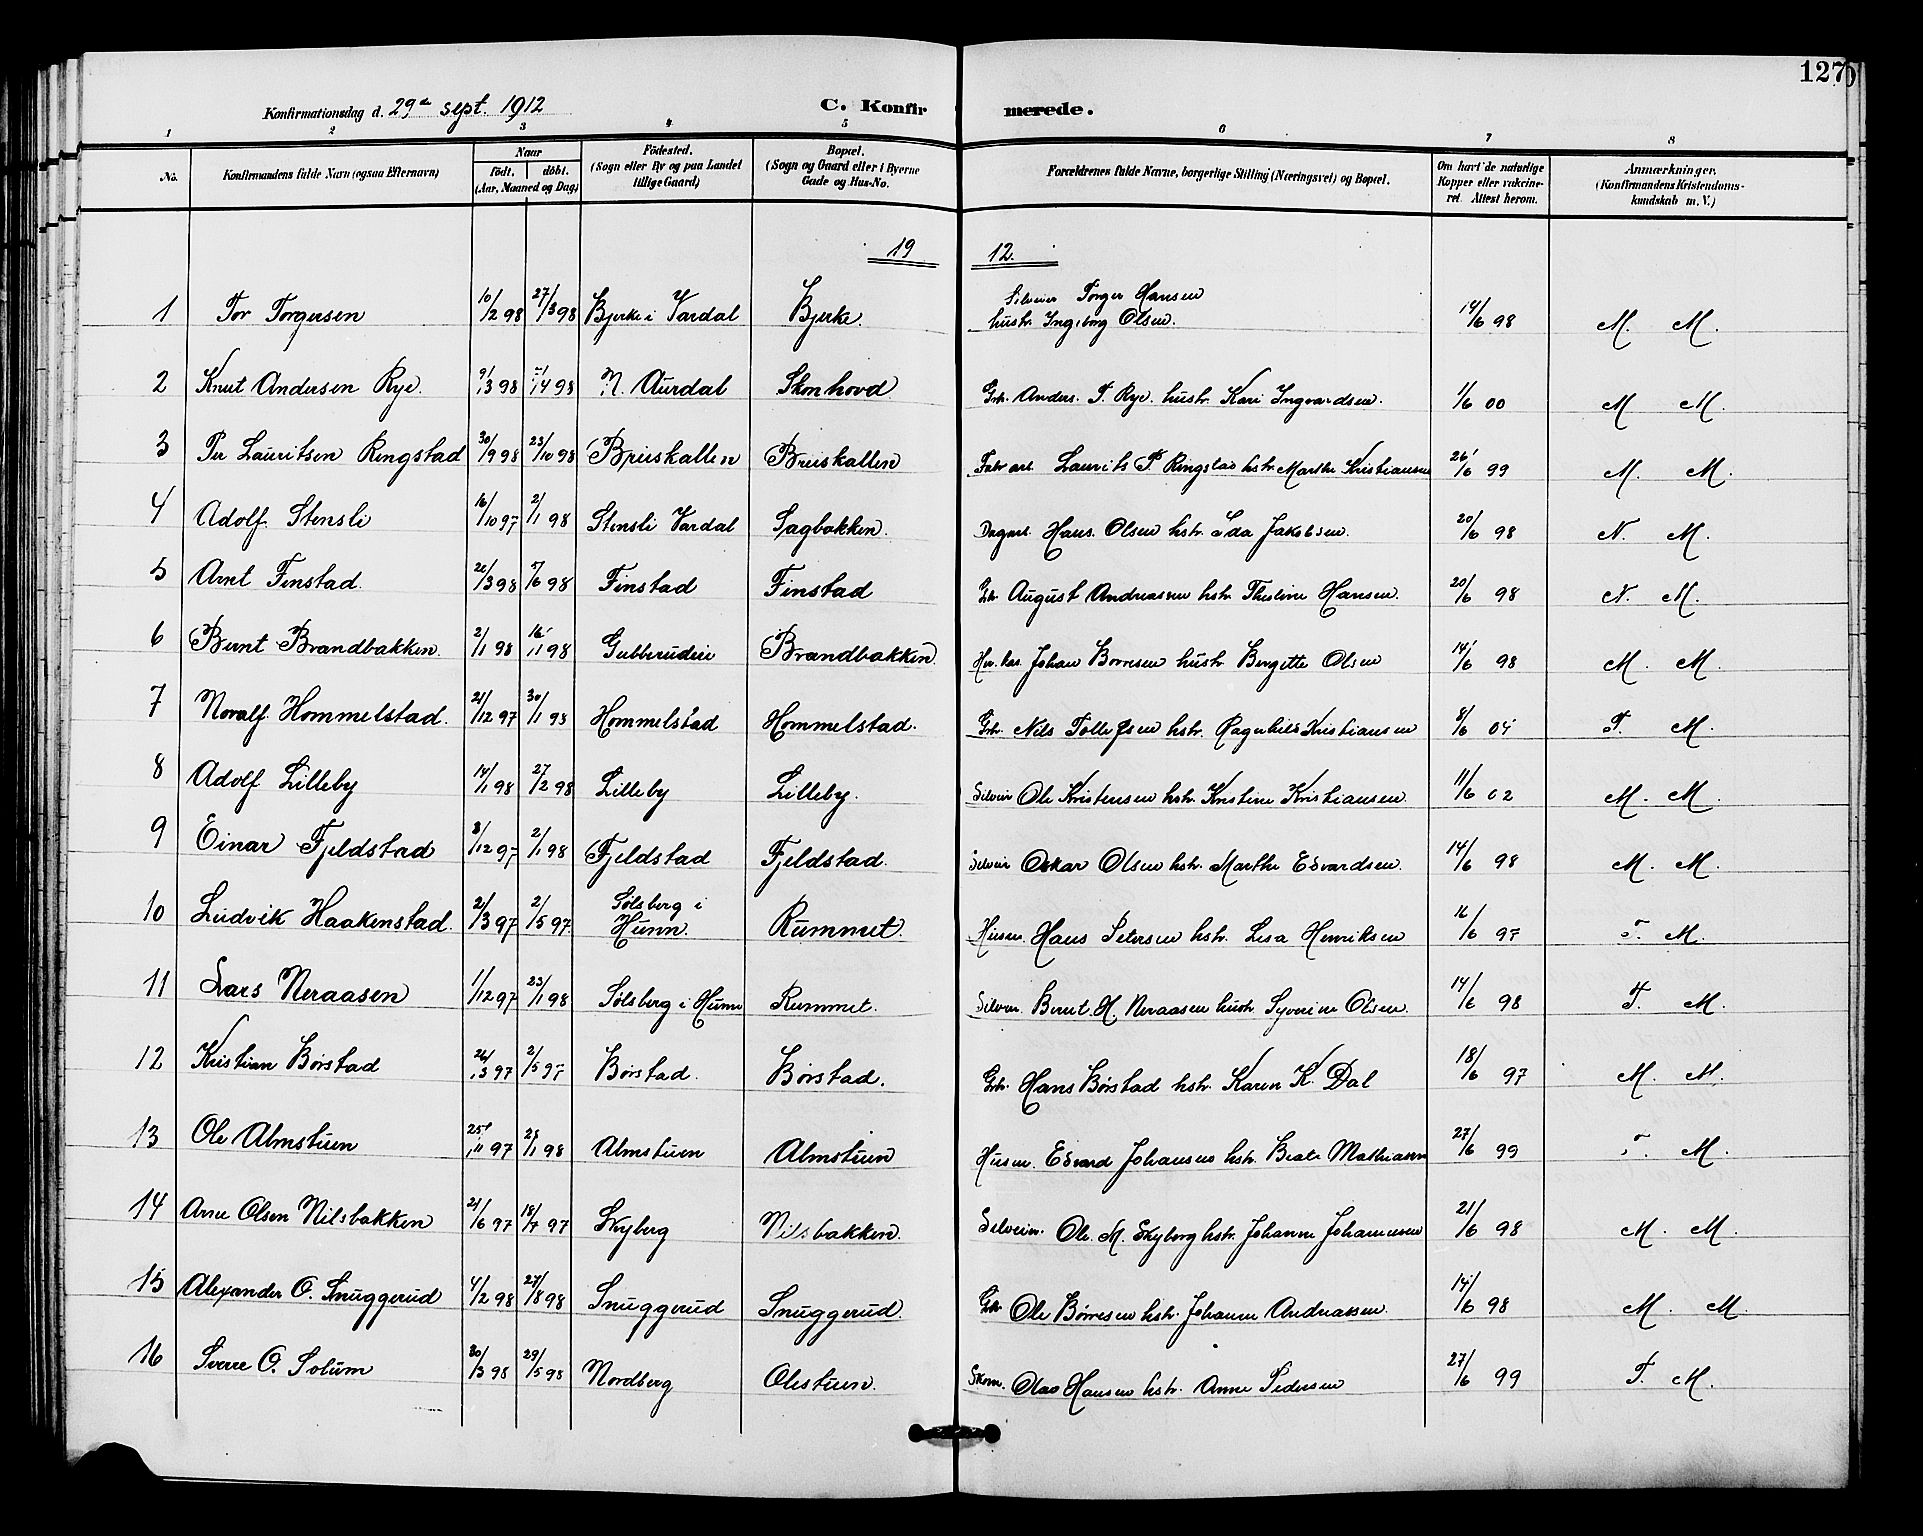 127
Konfirmationsdag d. 29de sept. 1912 C. Konfir merede.
1 2 3 4 5 6 7 8
No. Konfirmandens fulde Navn (ogsaa Efternavn) Naar födt. döbt. (Aar, Maaned og Dag) Födested. (Sogn eller By og paa Landet tillige Gaard) Bopæl. (Sogn og Gaard eller i Byerne Gade og Hus-No. Forældrenes fulde Navne, borgerlige Stilling (Næringsvei) og Bopæl. Om havt de naturlige Kopper eller vakcineret. Attest herom. Anmærkninger. (Konfirmandens Kristendomskundskab m. V.)
19 12.
1 Tor Torgersen 10/2 98 27/3 98 Bjerke i Vardal Bjerke. Selveier Torger Hansen hustr. Ingeborg Olsen. 14/6 98 M. M.
2 Knut Andersen Rye. 9/3 98 /4 98 N. Aurdal Skonhovd Grb. Anders. T. Rye. hustr. Kari Ingvardsen. 1/6 00 M M.
3 Per Lauritsen Ringstad 30/9 98 23/10 98 Bruskallen Bruskallen Fabr arb. Laurits P Ringstad hstr. Marthe Kristiansen 26/6 99 M. M.
4 Adolf. Stensli 16/10 97 2/1 98 Stensli Vardal Sagbakken. Dagarb. Hans. Olsen hstr. Ida Jakobsen. 20/6 98 N. M.
5 Arnt Finstad 21/3 98 /6 98 Finstad Finstad Grb. August Andreassen hstr. Thestine Hansen. 20/6 98 N. M.
6 Bernt Brandbakken. 2/1 98 16/1 98 Gubberudeie Brandbakken. Johan Borresen hustr. Bergitte Olsen 14/6 98 M. M.
7 Noralf. Hommelstad. 21/12 97 30/1 98 Hommelstad Hommelstad. Grb. Nils Tollefsen hstr. Ragnhild Kristiansen 8/6 04 T. M.
8 Adolf Lilleby 14/1 98 27/2 98 Lilleby Lilleby. Selveier Ole Kristensen hstr. Kristine Kristiansen. 11/6 02 M. M.
9 Einar Fjeldstad 8/12 97 2/1 98 Fjeldstad Fjeldstad. Selveier Oskar Olsen hstr. Marthe Edvardsen. 14/6 98 M. M.
10 Ludvik Haakenstad. 2/3 97 2/5 97 Sölsberg i Hunn. Rummet. Husm. Hans Petersen hstr. Lisa Henriksen 16/6 97 T. M.
11 Lars Neraasen 1/12 97 23/1 98 Sölsberg i Hunn Rummet. Selveier. Bernt. H. Neraasen hustr. Syverine Olsen. 14/6 98 T. M.
12 Kristian Börstad 26/3 97 2/5 97 Börstad. Börstad. Grb. Hans Börstad hstr. Karen K. Dal 18/6 97 M. M.
13 Ole Almstuen 25/11 97 23/1 98 Almstuen Almstuen Husm. Edvard Johansen hstr. Beate Mathiasen 27/6 99 T. M.
14 Arne Olsen Nilsbakken 21/6 97 18/7 97 Skyberg Nilsbakken. Selveier. Ole. M. Skyberg hstr. Johanne Johannesen 21/6 98 M. M.
15 Alexander O. Snuggerud 4/2 98 27/8 98 Snuggerud Snuggerud. Grb. Ole Börresen hstr. Johanne Andreassen. 14/6 98 M. M.
16 Sverre O. Solum 30/3 98 29/5 98 Nordberg Olestuen. Skom. Olav Hansen hstr. Anne Pedersen 27/6 99 T. M.